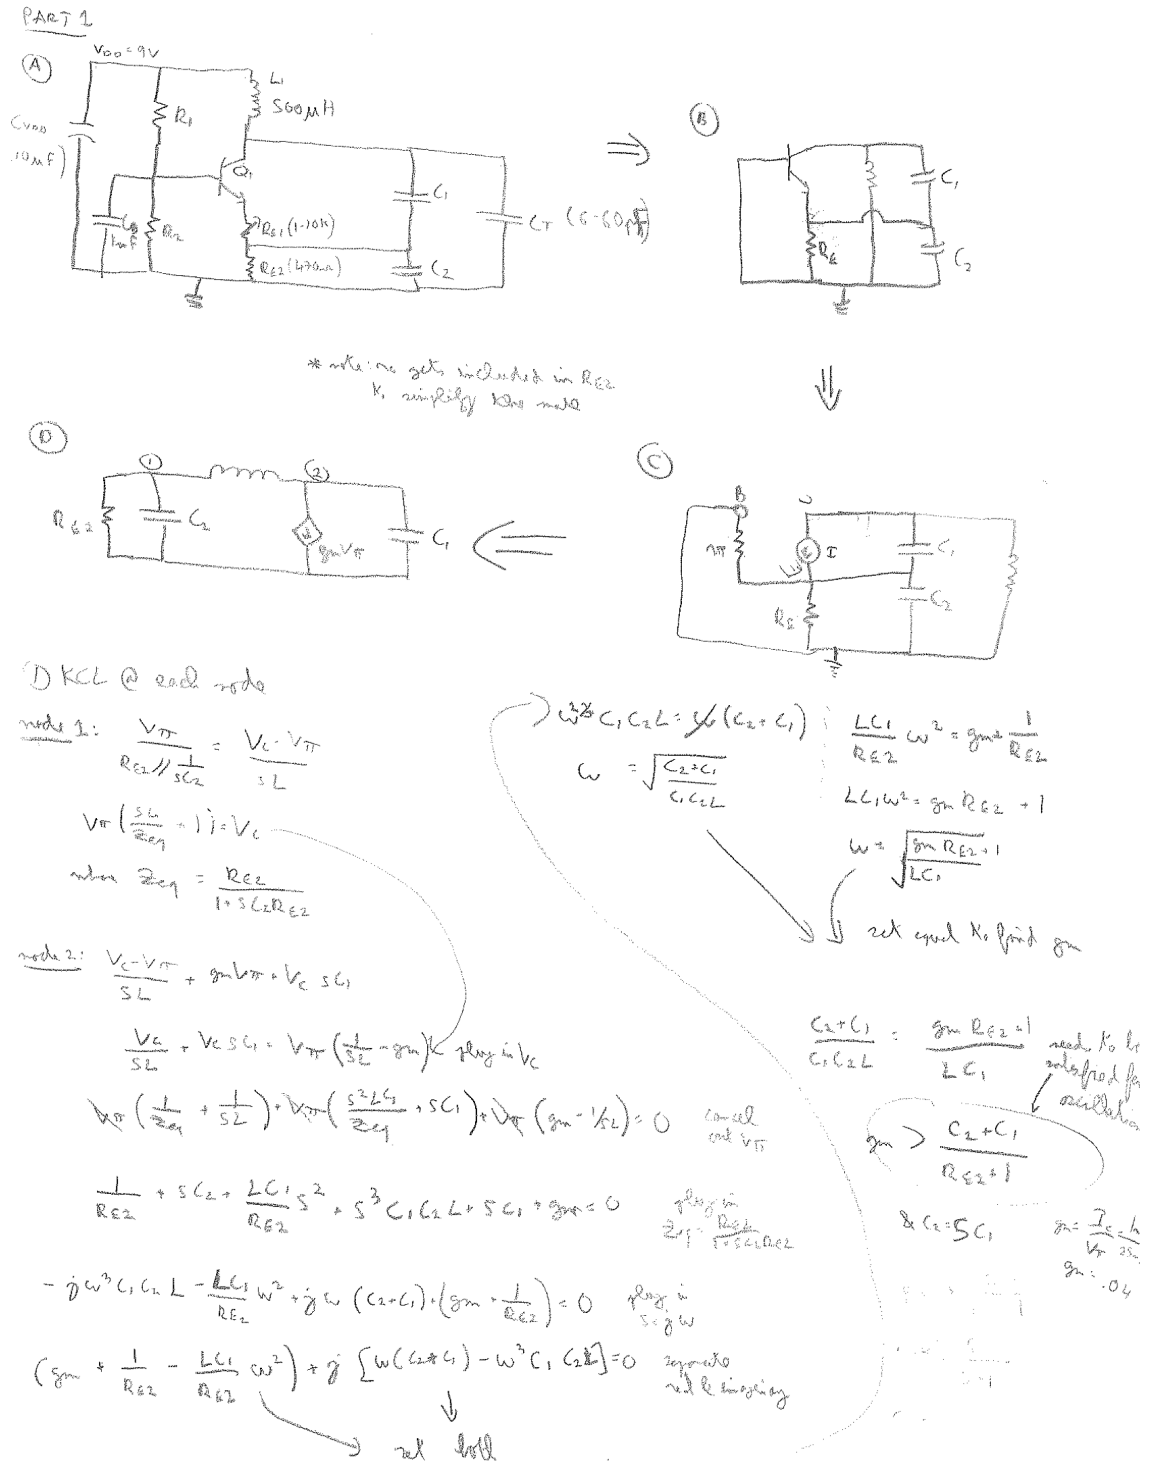 PART 1
A
VDD = 9V
L1
560μH
R1
CVDD
10μF)
Q1
C1
CT (6-60pF)
CB
1μF
R2
RE1 (1-10K)
RE2 (470Ω)
C2
B
C1
RE
C2
* note: ro gets included in RE2
to simplify the math
D
1
2
RE2
C2
gmVπ
C1
C
B
C
rπ
I
C1
RE
C2
1) KCL @ each node
node 1: Vπ / (RE2 // 1/sC2) = (Vc - Vπ) / sL
Vπ (sL/Zeq + 1) = Vc
when Zeq = RE2 / (1 + sC2RE2)
node 2: (Vc - Vπ)/sL + gmVπ + Vc sC1
Vc/sL + Vc sC1 = Vπ (1/sL - gm) plug in Vc
Vπ (1/Zeq + 1/sL) + Vπ (s²LC1/Zeq + sC1) + Vπ (gm - 1/sL) = 0 cancel out Vπ
1/RE2 + sC2 + LC1/RE2 s² + s³C1C2L + sC1 + gm = 0 plug in
Zeq = RE2/(1+sC2RE2)
- jω³C1C2L - LC1/RE2 ω² + jω (C2+C1) + (gm + 1/RE2) = 0 plug in
s = jω
(gm + 1/RE2 - LC1/RE2 ω²) + j [ω(C2+C1) - ω³C1C2L] = 0 separate
real & imaginary
set both
ω³ C1C2L = ω (C2+C1)
ω = √((C2+C1)/(C1C2L))
LC1/RE2 ω² = gm + 1/RE2
LC1ω² = gm RE2 + 1
ω = √((gm RE2 + 1)/LC1)
set equal to find gm
(C2+C1)/(C1C2L) = (gm RE2 + 1)/LC1
need to be
satisfied for
oscillation
gm > (C2+C1)/(RE2+1)
& C2 = 5C1
gm = Ic/VT
gm = .04